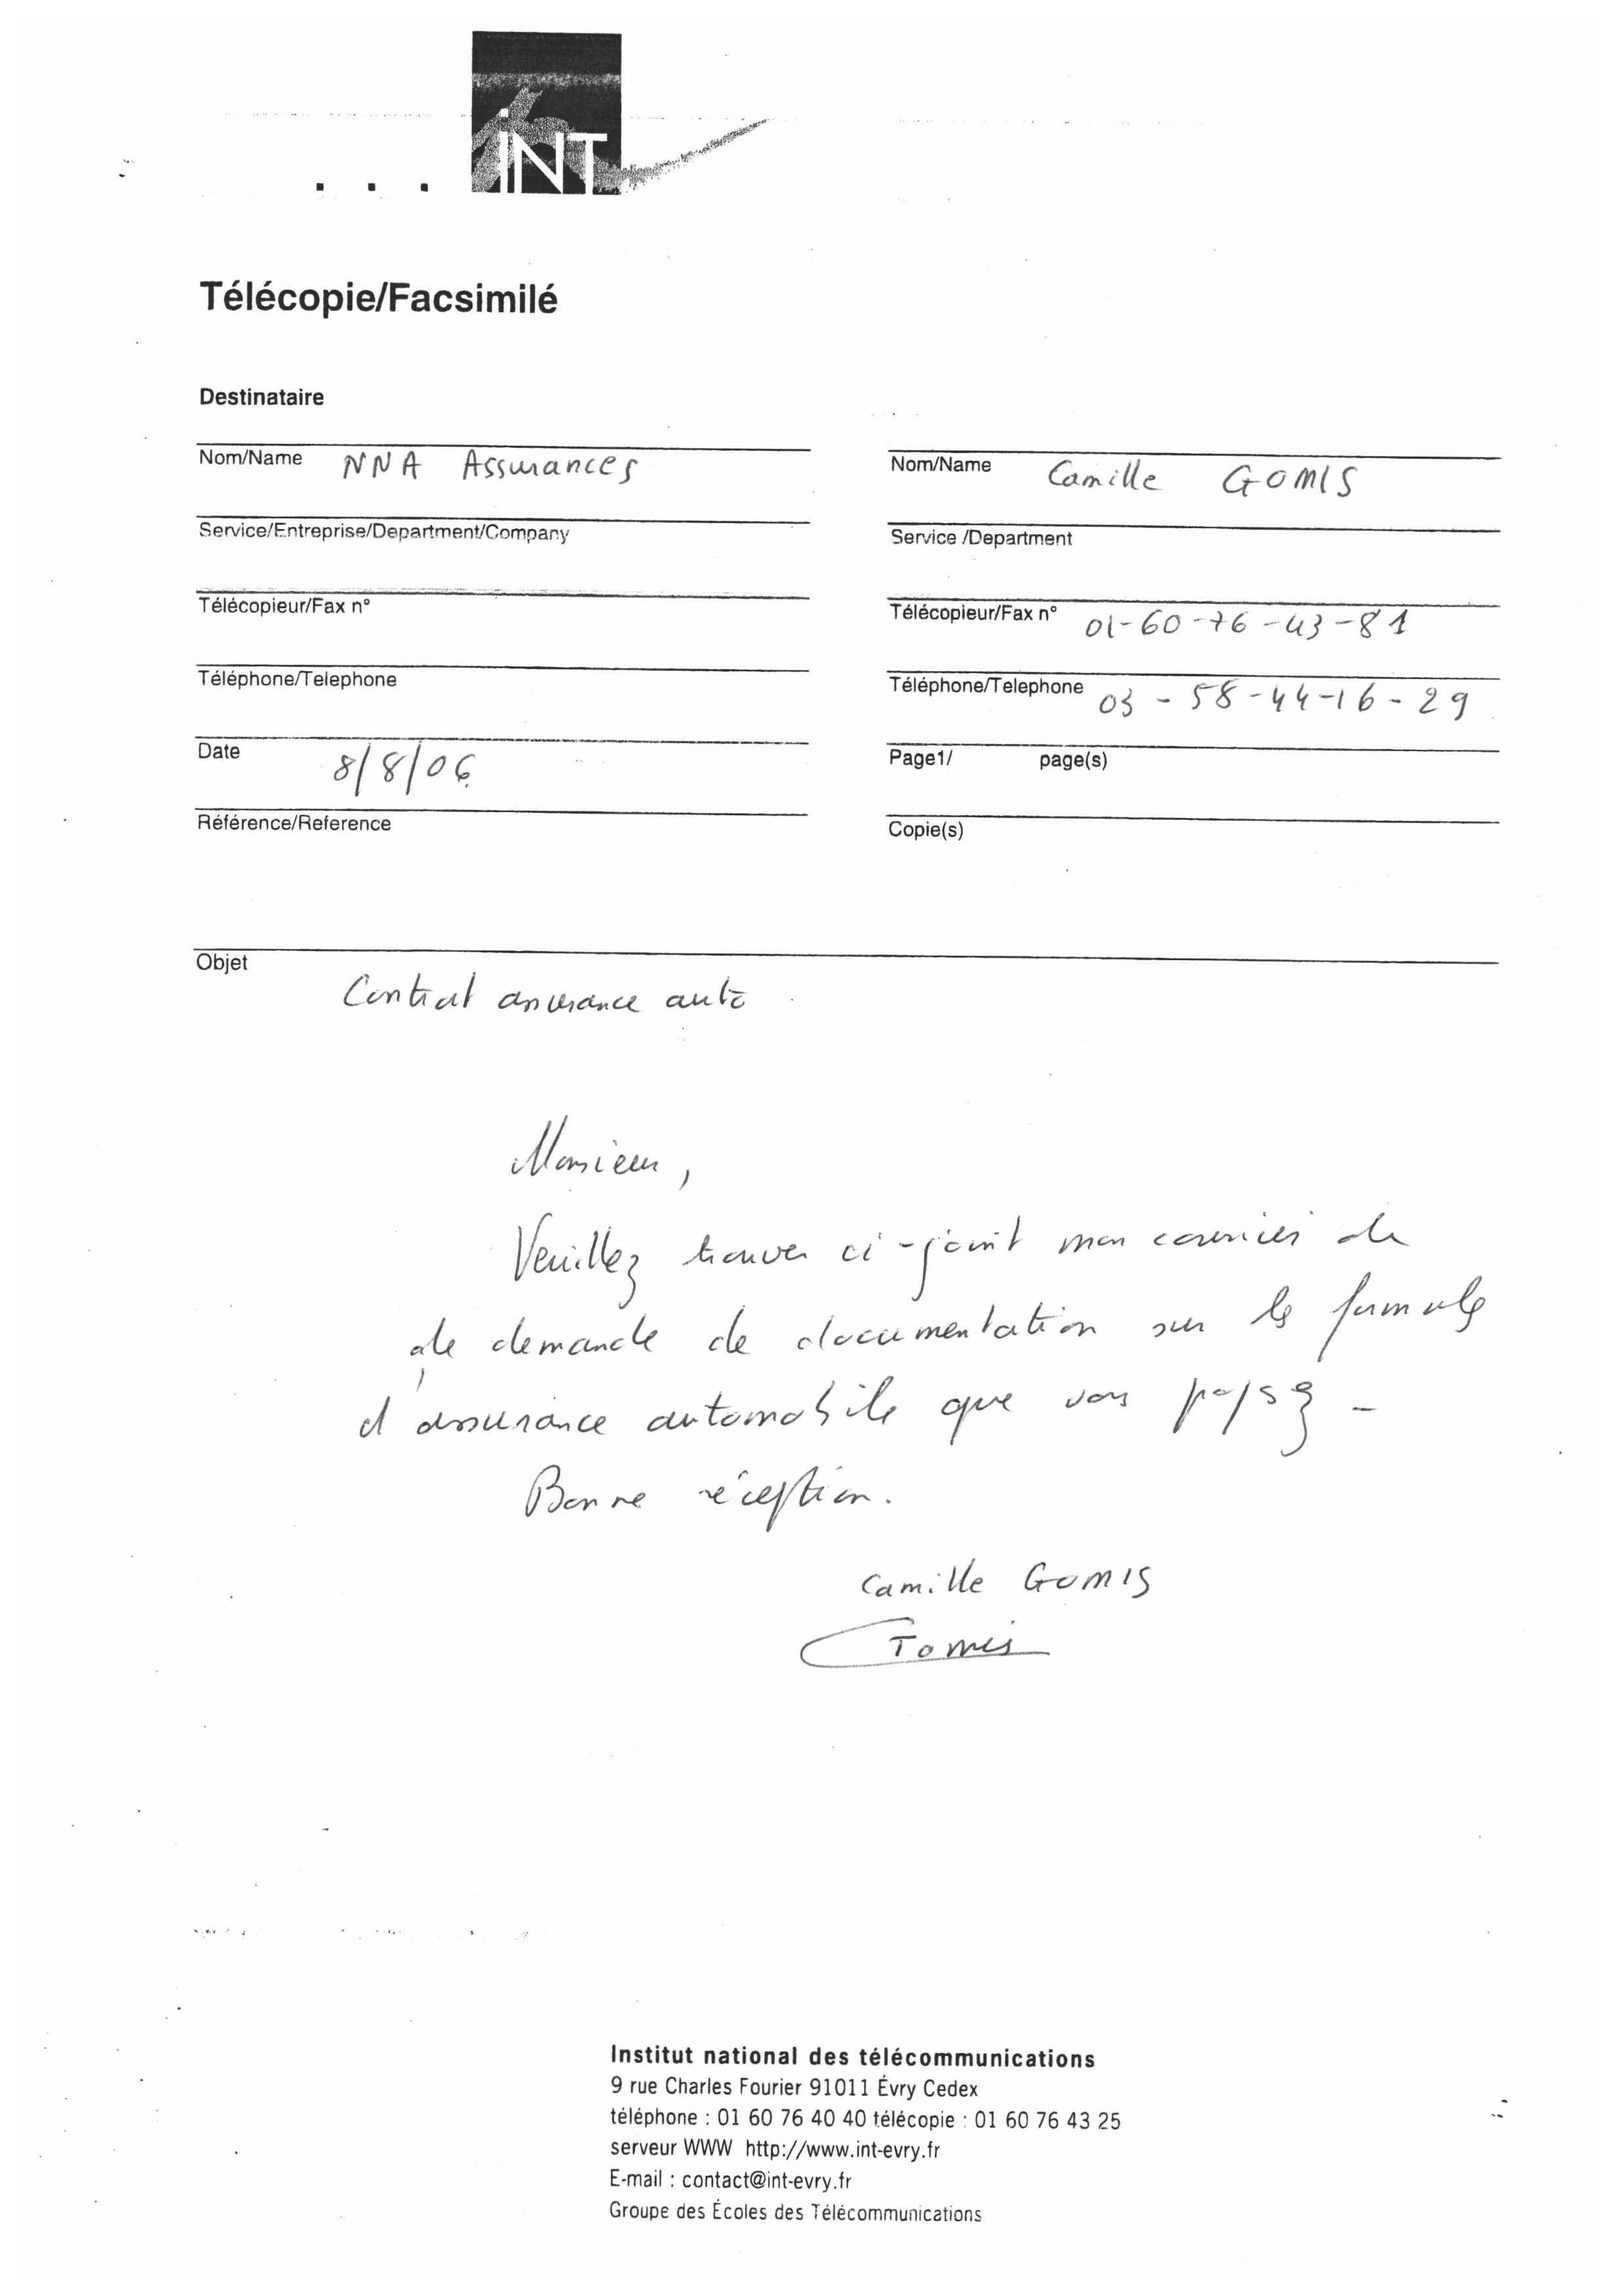 iNT
Télécopie/Facsimilé
Destinataire
Nom/Name NNA Assurances
Service/Entreprise/Department/Company
Télécopieur/Fax n°
Téléphone/Telephone
Date 8/8/06
Référence/Reference
Nom/Name Camille GOMIS
Service /Department
Télécopieur/Fax n° 01-60-76-43-81
Téléphone/Telephone 03-58-44-16-29
Page1/ page(s)
Copie(s)
Objet
Contrat assurance auto
Monsieur,
Veuillez trouver ci-joint mon courrier de
de demande de documentation sur les formules
d'assurance automobile que vous
Bonne réception.
Camille GOMIS
Gomis
Institut national des télécommunications
9 rue Charles Fourier 91011 Évry Cedex
téléphone : 01 60 76 40 40 télécopie : 01 60 76 43 25
serveur WWW http://www.int-evry.fr
E-mail : contact@int-evry.fr
Groupe des Écoles des Télécommunications